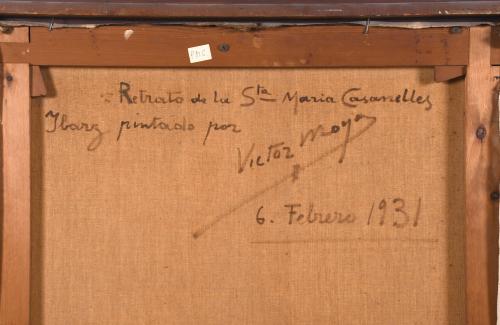 Retrato de la Sta Maria Casanelles
Ibarz pintado por
Victor Moya
6. Febrero 1931